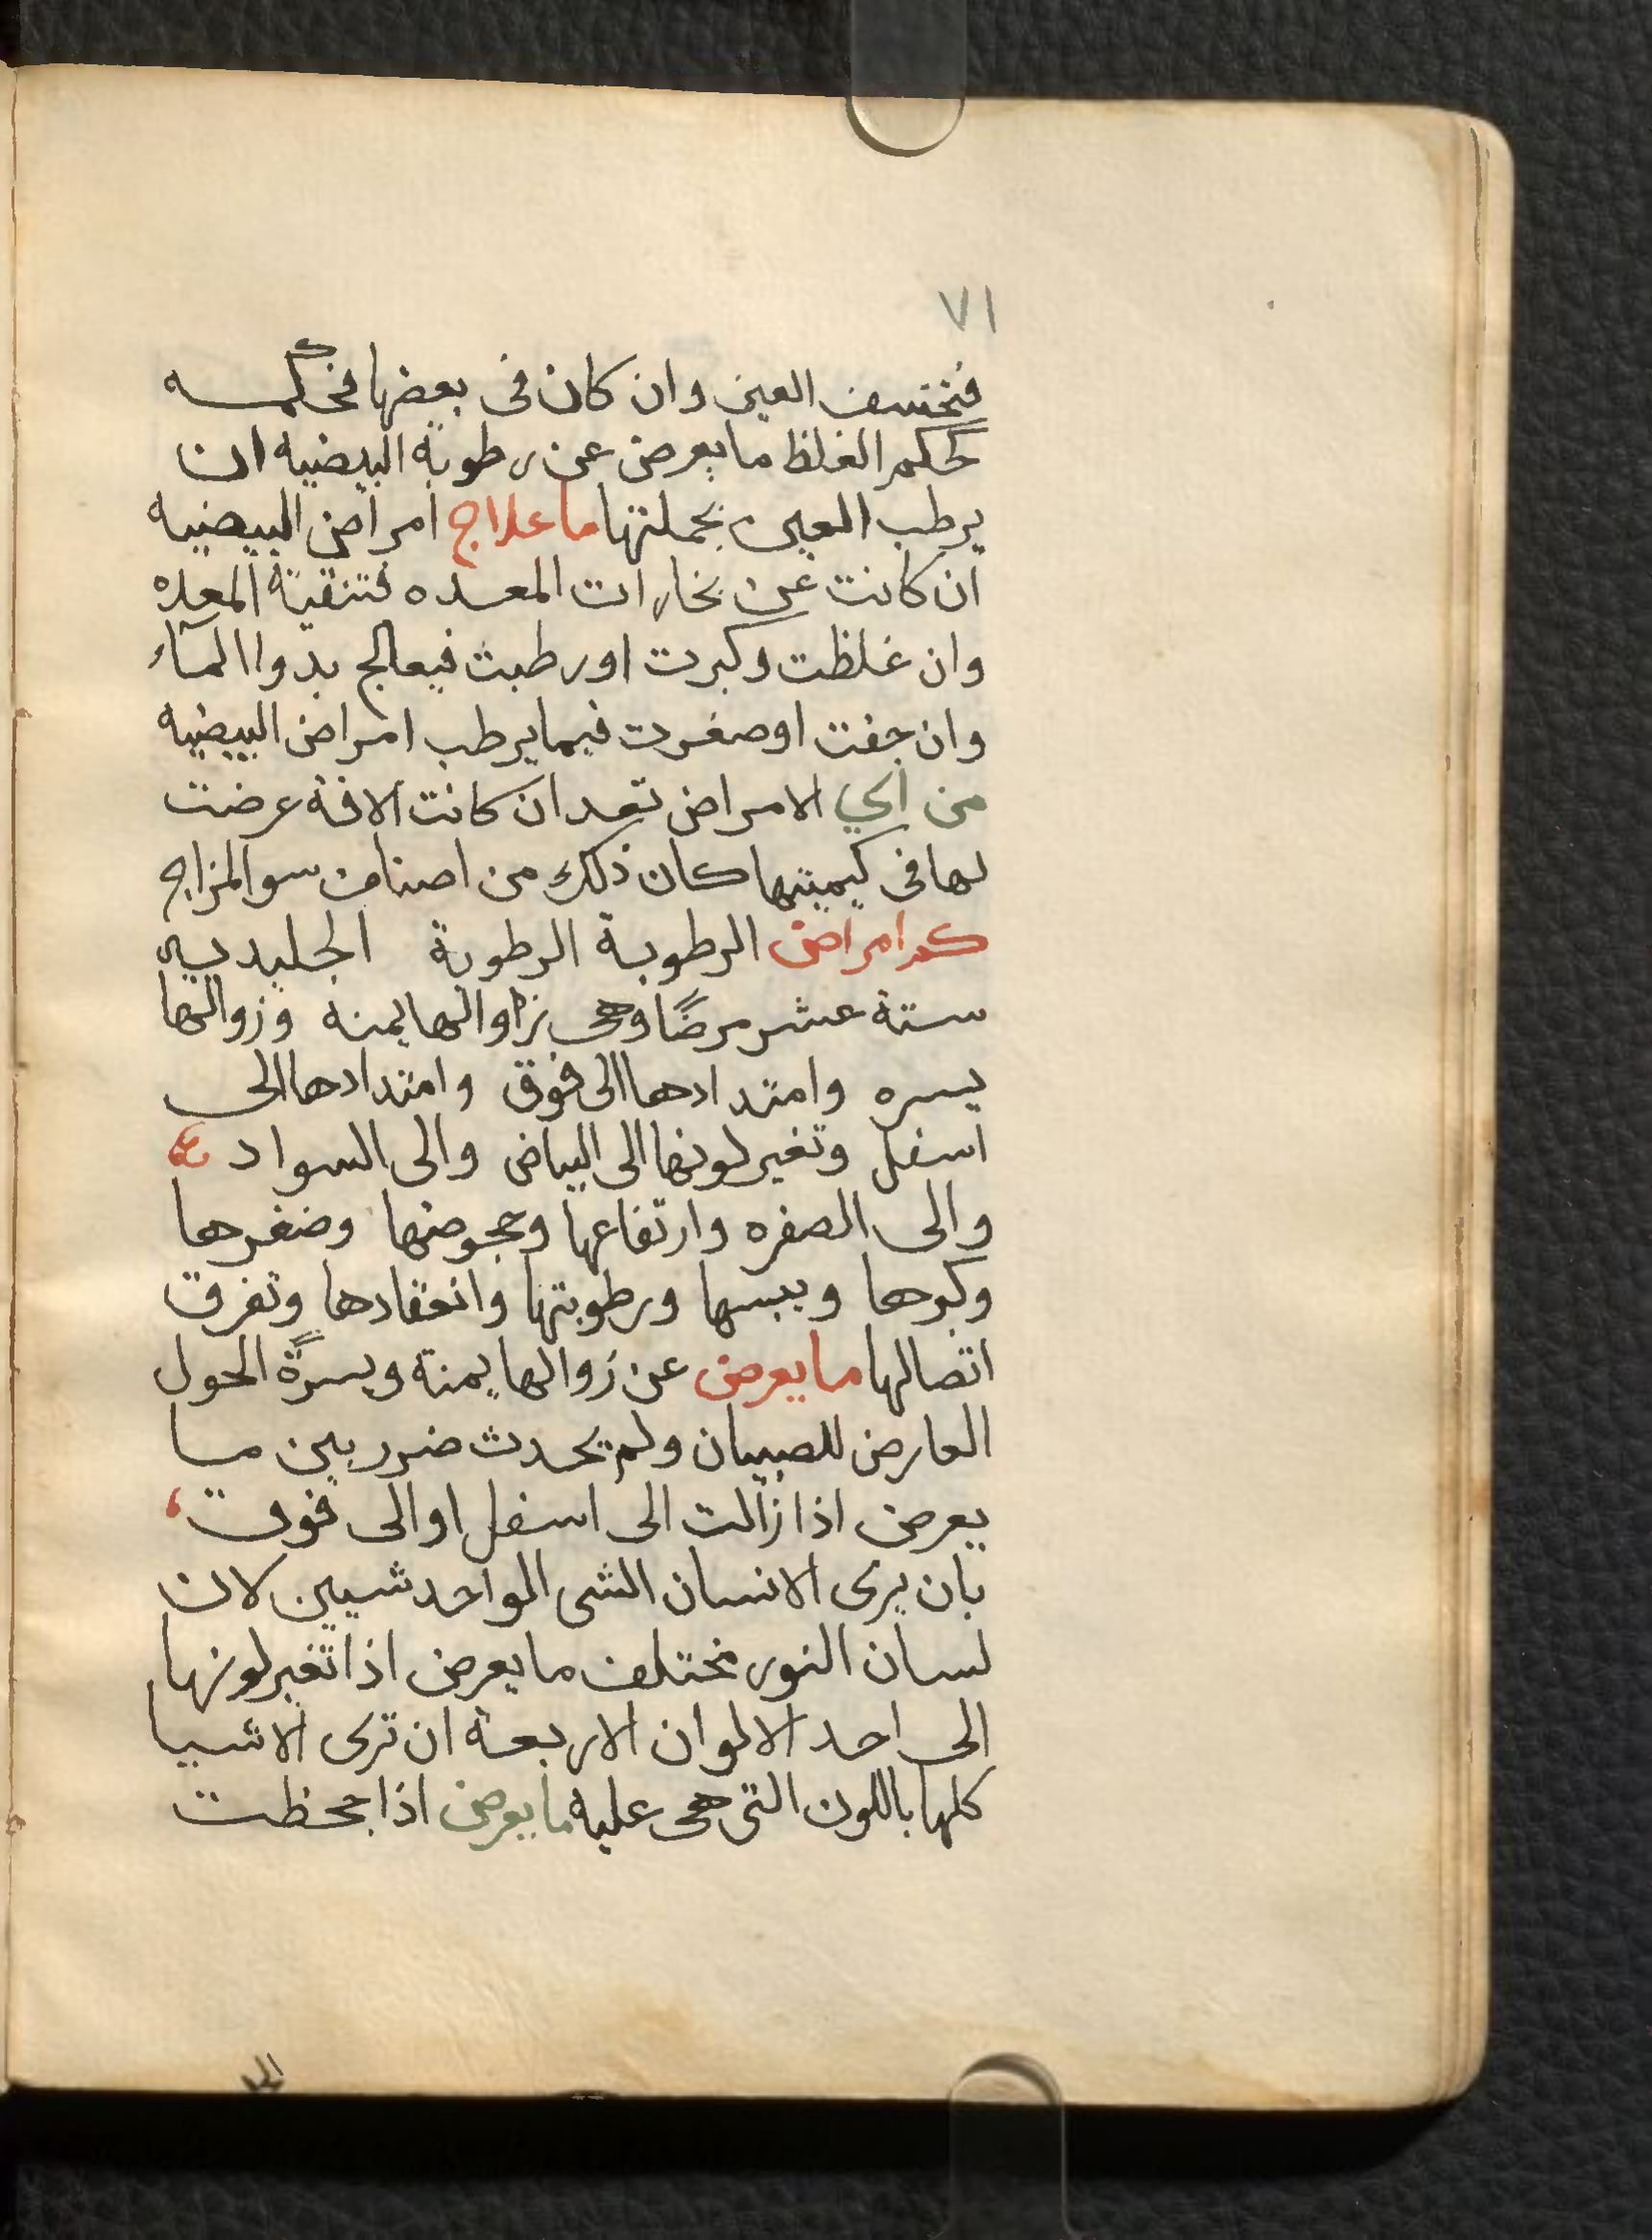 ٧١
فتخسف العين وان كان فى بعضها فحكمه
كحكم الغلظ ما يعرض عن رطوبة البيضيه ان
يرطب العين بجملتها ما علاج امراض البيضيه
ان كانت عن بخارات المعده فتنقية المعده
وان غلظت وكبرت اورطبت فيعالج بدوا المآء
وان جفت اوصغرت فيما يرطب امراض البيضيه
من اي الامراض تعد ان كانت الافة عرضت
لها فى كيميتها كان ذلك من اصناف سو المزاج
كم امراض الرطوبة الرطوبة الجليديه
ستة عشر مرضًا وهى زوالها يمنه وزوالها
يسره وامتدادها الى فوق وامتدادها الى
اسفل وتغير لونها الى البياض والى السواد
والى الصفره وارتفاعها وحجوضها وضغرها
وكبرها ويبسها ورطوبتها وانعقادها وتفرق
اتصالها ما يعرض عن زوالها يمنة ويسرةً الحول
العارض للصبيان ولم يحدث ضرر بين ما
يعرض اذا زالت الى اسفل او الى فوق
بان يرى الانسان الشى الواحد شيين لان
لسان النور مختلف ما يعرض اذا تغير لونها
الى احد الالوان الاربعة ان ترى الاشيا
كلها باللون التى هى عليه ما يعرض اذا جحظت